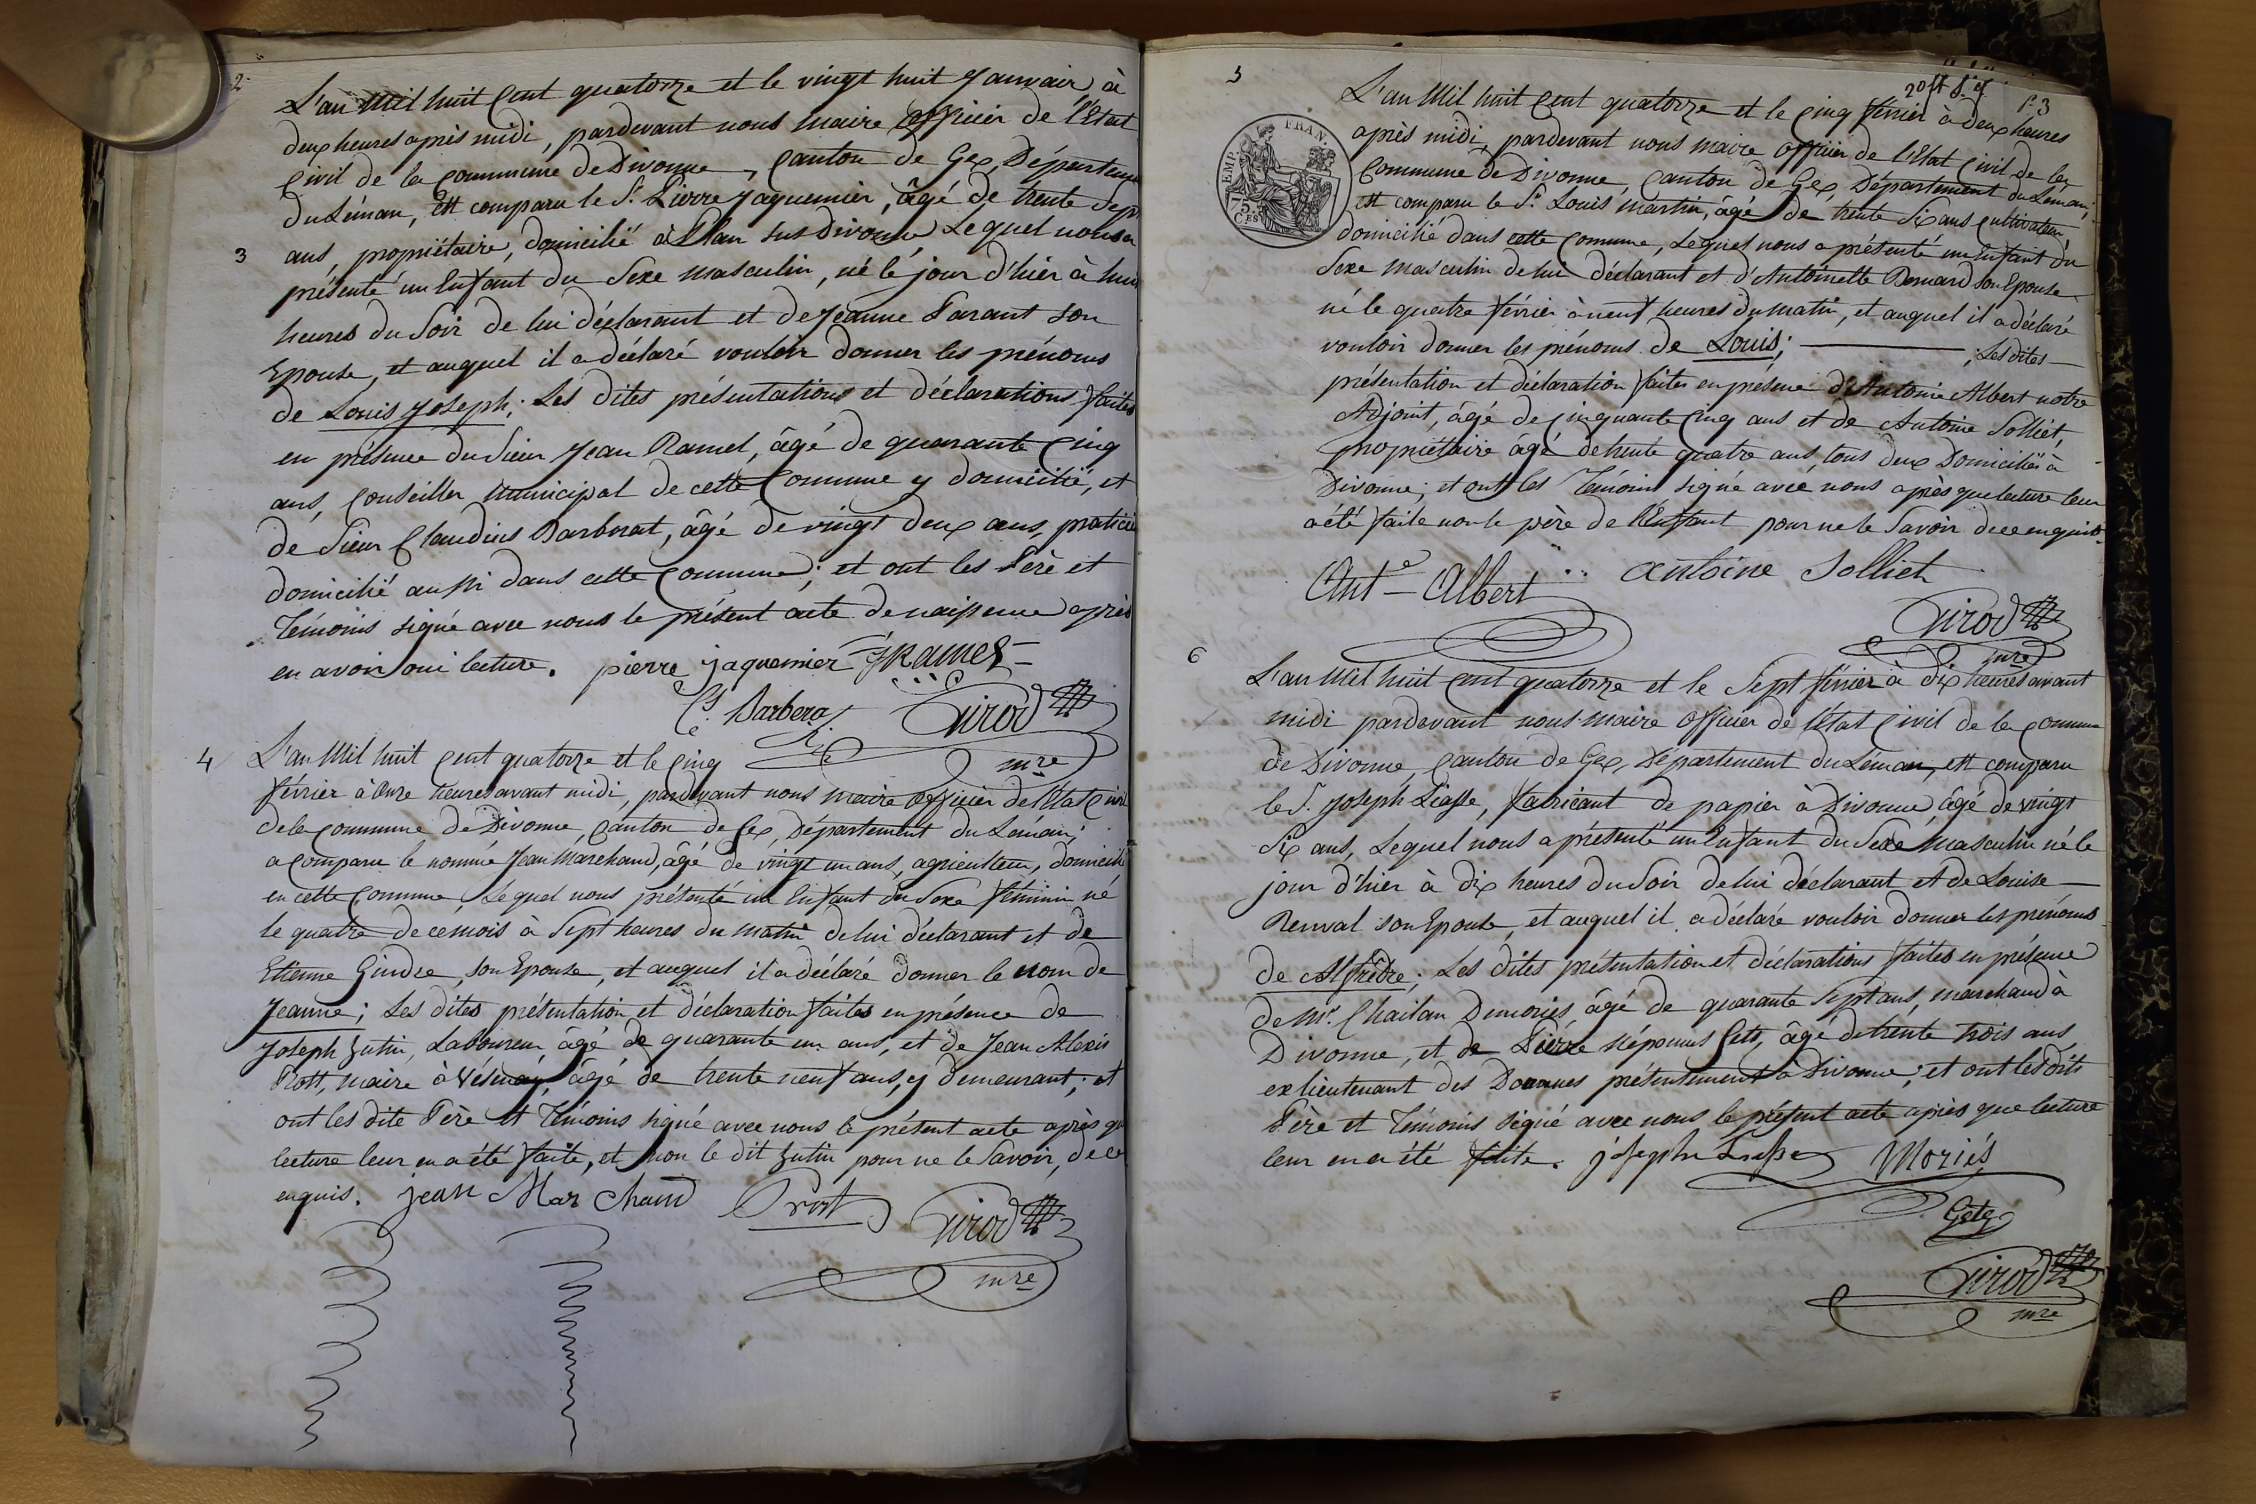 2.
L'an Mil huit Cent quatorze et le vingt huit Janvair à
deux heures après midi, pardevant nous Maire Officier de l'Etat
Civil de la Commune de Divonne, Canton de Gex, Départem
du Léman, Est comparu le Sr. Pierre Jaquemier, âgé de trente Sep
3
ans, propriétaire, domicilié à Plan sus Divonne Lequel nous a
présenté un Enfant du Sexe Masculin, né le jour d'hier à huit
heures du Soir de lui déclarant et de Jeanne Parant Son
Epouse, et auquel il a déclaré vouloir donner les prénoms
de Louis Joseph; Les dites présentations et déclarations faites
en présence du Sieur Jean Ramel, âgé de quarante Cinq
ans, Conseiller Municipal de cette Commune y domicilié, et
de Sieur Claudius Barberat, âgé de vingt deux ans, praticie
domicilié aussi dans cette Commune; et ont les Père et
Témoins signé avec nous le présent acte de naissence après
en avoir oui lecture. pierre jaquemier JRamel
Cl. Barberat Girod
mre
4
L'an Mil huit Cent quatorze et le Cinq
février à Onze heures avant midi, pardevant nous Maire Officier de l'Etat Civil
de la Commune de Divonne, Canton de Gex, Département du Léman;
a Comparu le nommé Jean Marchand, âgé de vingt un ans, agriculteur, domicilié
en cette Commune Lequel nous présenté un Enfant du Sexe féminin né
le quatre de ce mois à Sept heures du Matin de lui déclarant et de
Etienne Gindre, son Epouse, et auquel il a déclaré donner le nom de
Jeanne; Les dites présentation et déclaration faites en présence de
Joseph Jutin, Laboureur âgé de quarante un ans, et de Jean Alexis
Prost, maire à Vésenay, âgé de trente neuf ans, y demeurant; et
ont les dits Père et Témoins signé avec nous le présent acte après qu
lecture leur en a été faite, et non le dit Jutin pour ne le Savoir, de ce
enquis. jean Mar chand Prost Girod
mre
5
20ft
f.3
L'an Mil huit Cent quatorze et le Cinq février à deux heures
après midi, pardevant nous maire Officier de l'Etat Civil de la
Commune de Divonne, Canton de Gex, Département du Léman;
EMP. FRAN.
75
est comparu le Sr. Louis Martin, âgé de trente Six ans Cultivateur,
domicilié dans cette Commune, Lequel nous a présenté un Enfant du
Sexe Masculin de lui déclarant et d'Antoinette Bernard Son Epouse
né le quatre février à neuf heures du matin, et auquel il a déclaré
vouloir donner les prénoms de Louis; ; Les dites
présentation et déclaration faites en présence d'Antoine Albert notre
Adjoint, âgé de Cinquante Cinq ans et de Antoine Solliet,
propriétaire âgé de trente quatre ans, tous deux Domiciliés à
Divonne; et ont les Témoins signé avec nous après que lecture leur
a été faite non le père de l'Enfant pour ne le Savoir de ce enquis
Ante Albert antoine Solliet
Girod
mre
6
L'an Mil huit Cent quatorze et le Sept février à dix heures avant
midi pardevant nous maire Officier de l'Etat Civil de la Commune
de Divonne, Canton de Gex, Département du Léman, est comparu
le Sr. Joseph Liasse, fabricant de papier à Divonne, âgé de vingt
Six ans, Lequel nous a présenté un Enfant du Sexe Masculin né le
jour d'hier à dix heures du Soir de lui déclarant et de Louise
Renval son Epouse, et auquel il a déclaré vouloir donner les prénoms
de Alfrède; Les dites présentation et déclarations faites en présence
de Mr. Chailan Demoriés âgé de quarante Sept ans, marchand à
Divonne, et de Pierre Népomus Gets, âgé de trente trois ans,
ex lieutenant des Douanes présentement à Divonne; et ont les dits
Père et Témoins signé avec nous le présent acte après que lecture
leur en a été faite. joseph Liasse Moriés
Gets
Girod
mre